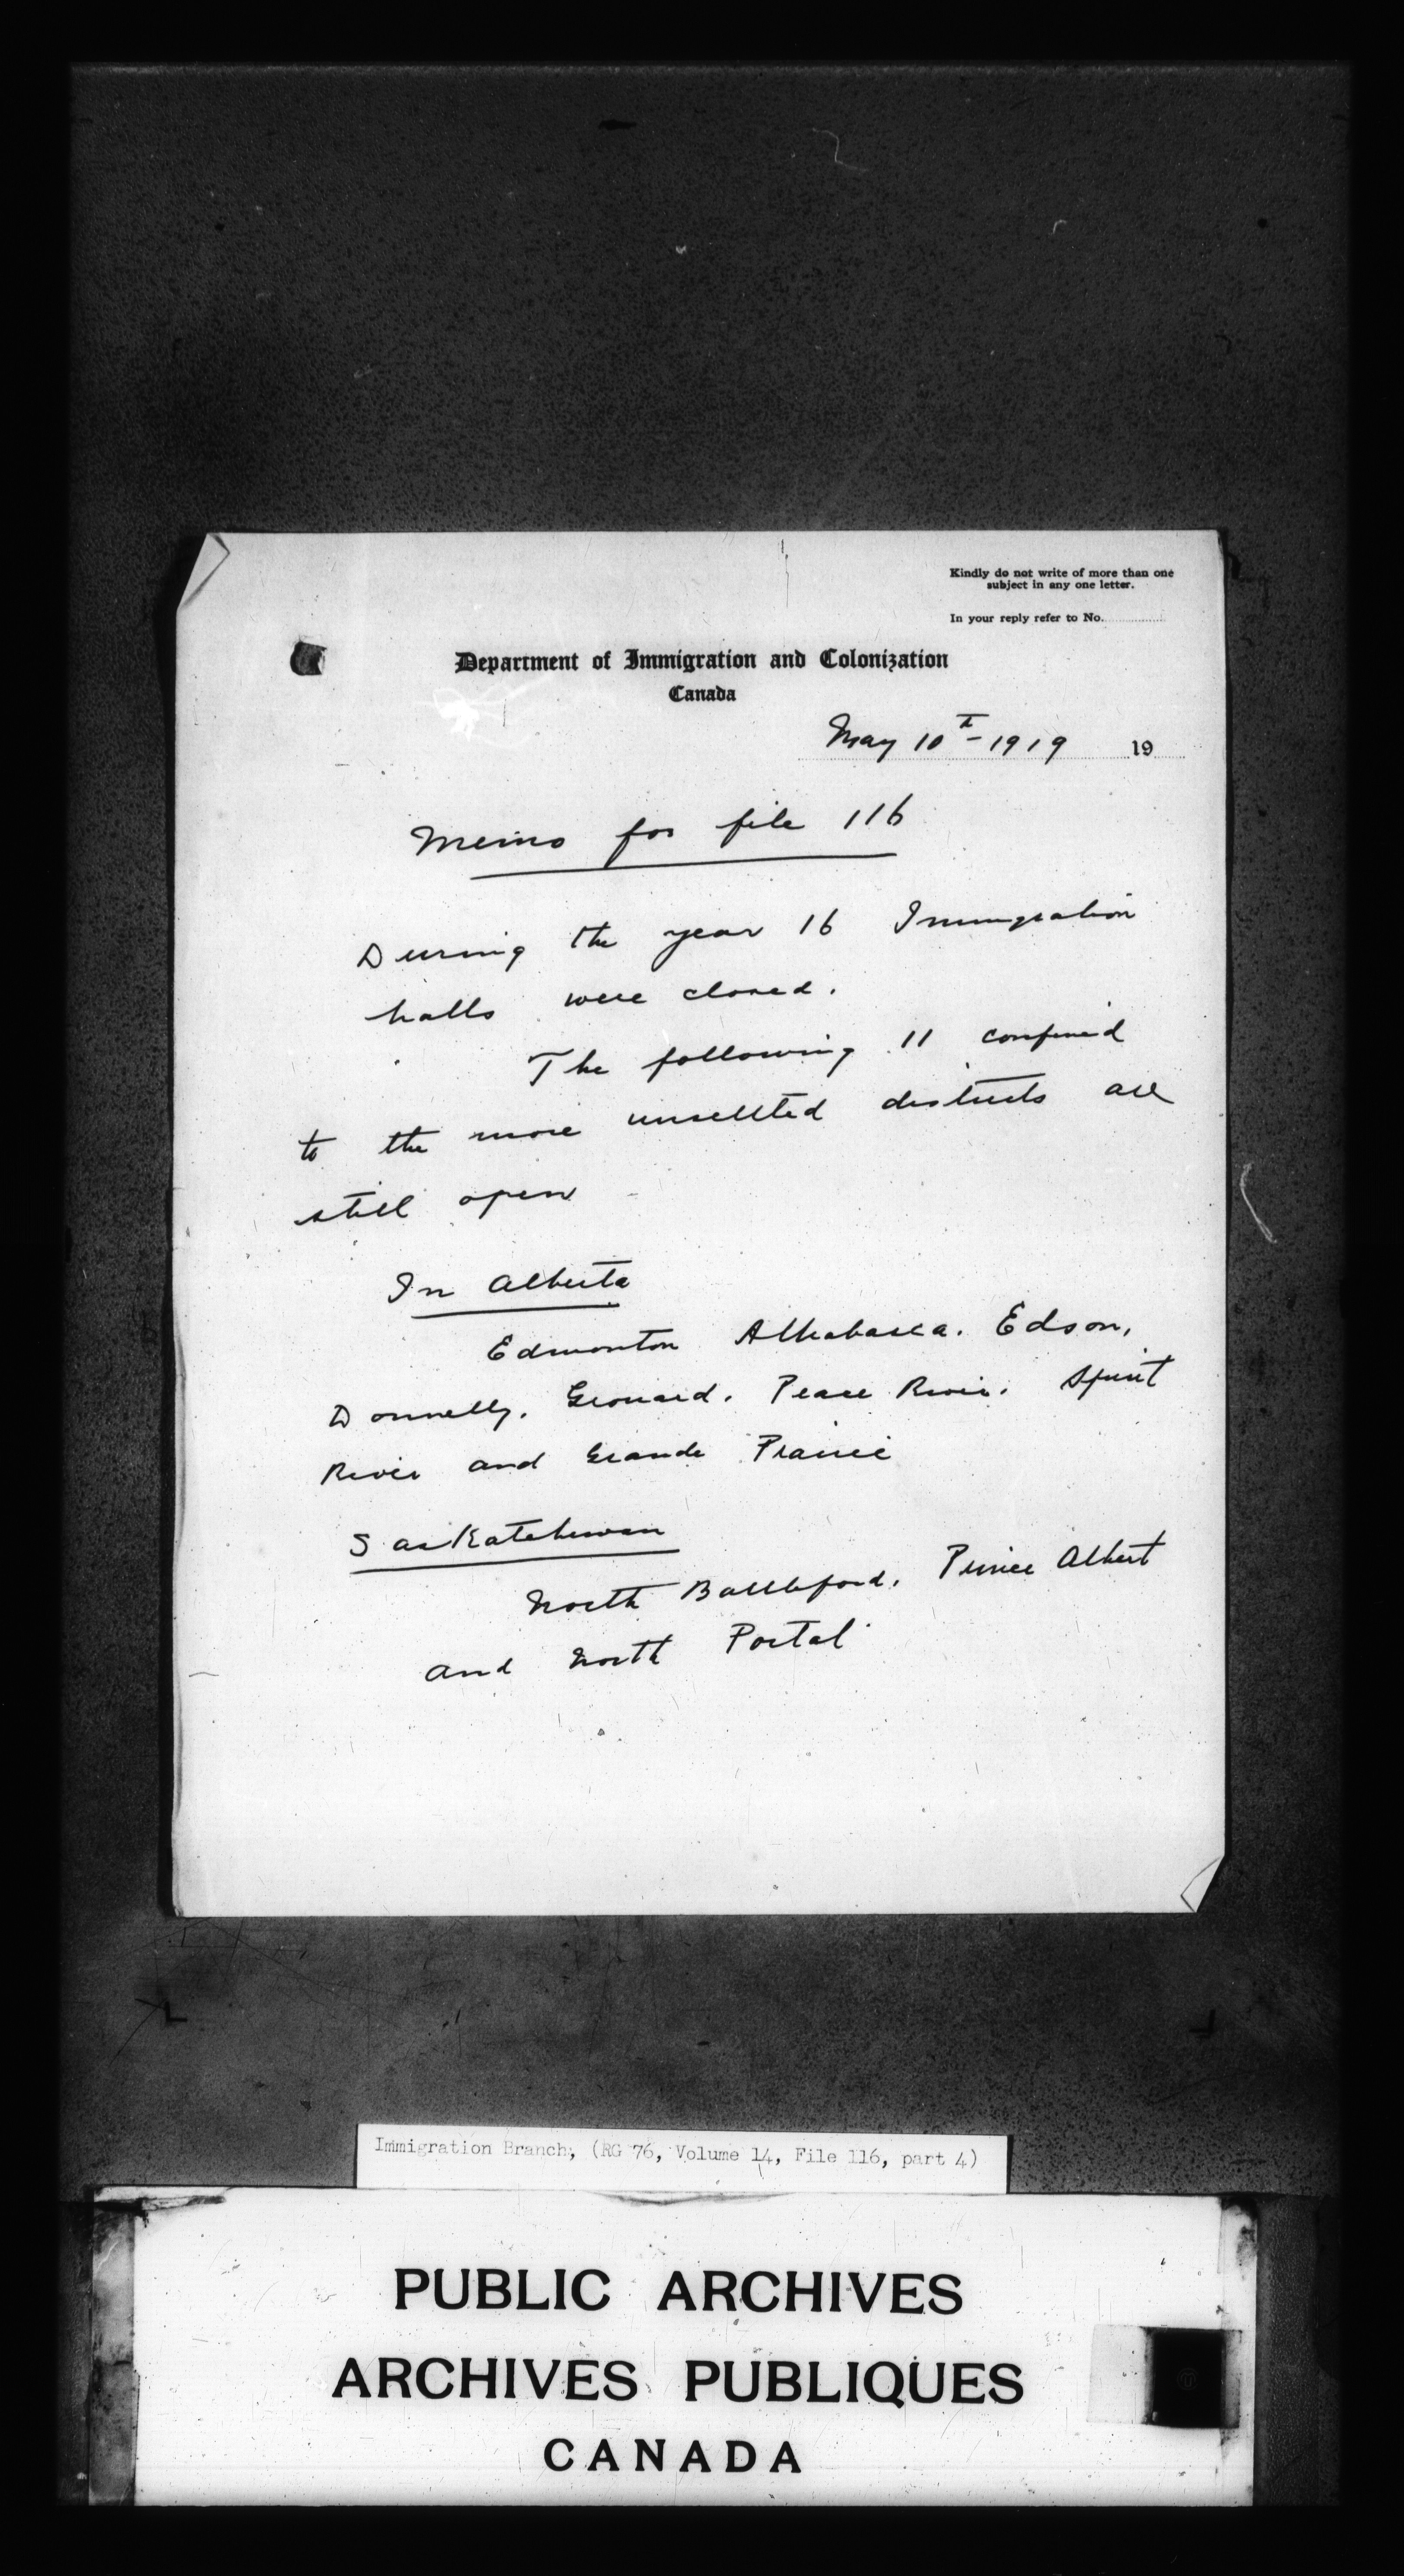 Kindly do not write of more than one
subject in any one letter.
In your reply refer to No.
Department of Immigration and Colonization
Canada
May 10th - 1919 19
Memo for file 116
During the year 16 Immigration
halls were closed.
The following 11 confined
to the more unsettled districts are
still open
In Alberta
Edmonton Athabasca. Edson,
Donnelly. Grouard. Peace River. Spirit
River and Grande Prairie
Saskatchewan
North Battleford. Prince Albert
and North Portal
Immigration Branch, (RG 76, Volume 14, File 116, part 4)
PUBLIC ARCHIVES
ARCHIVES PUBLIQUES
CANADA